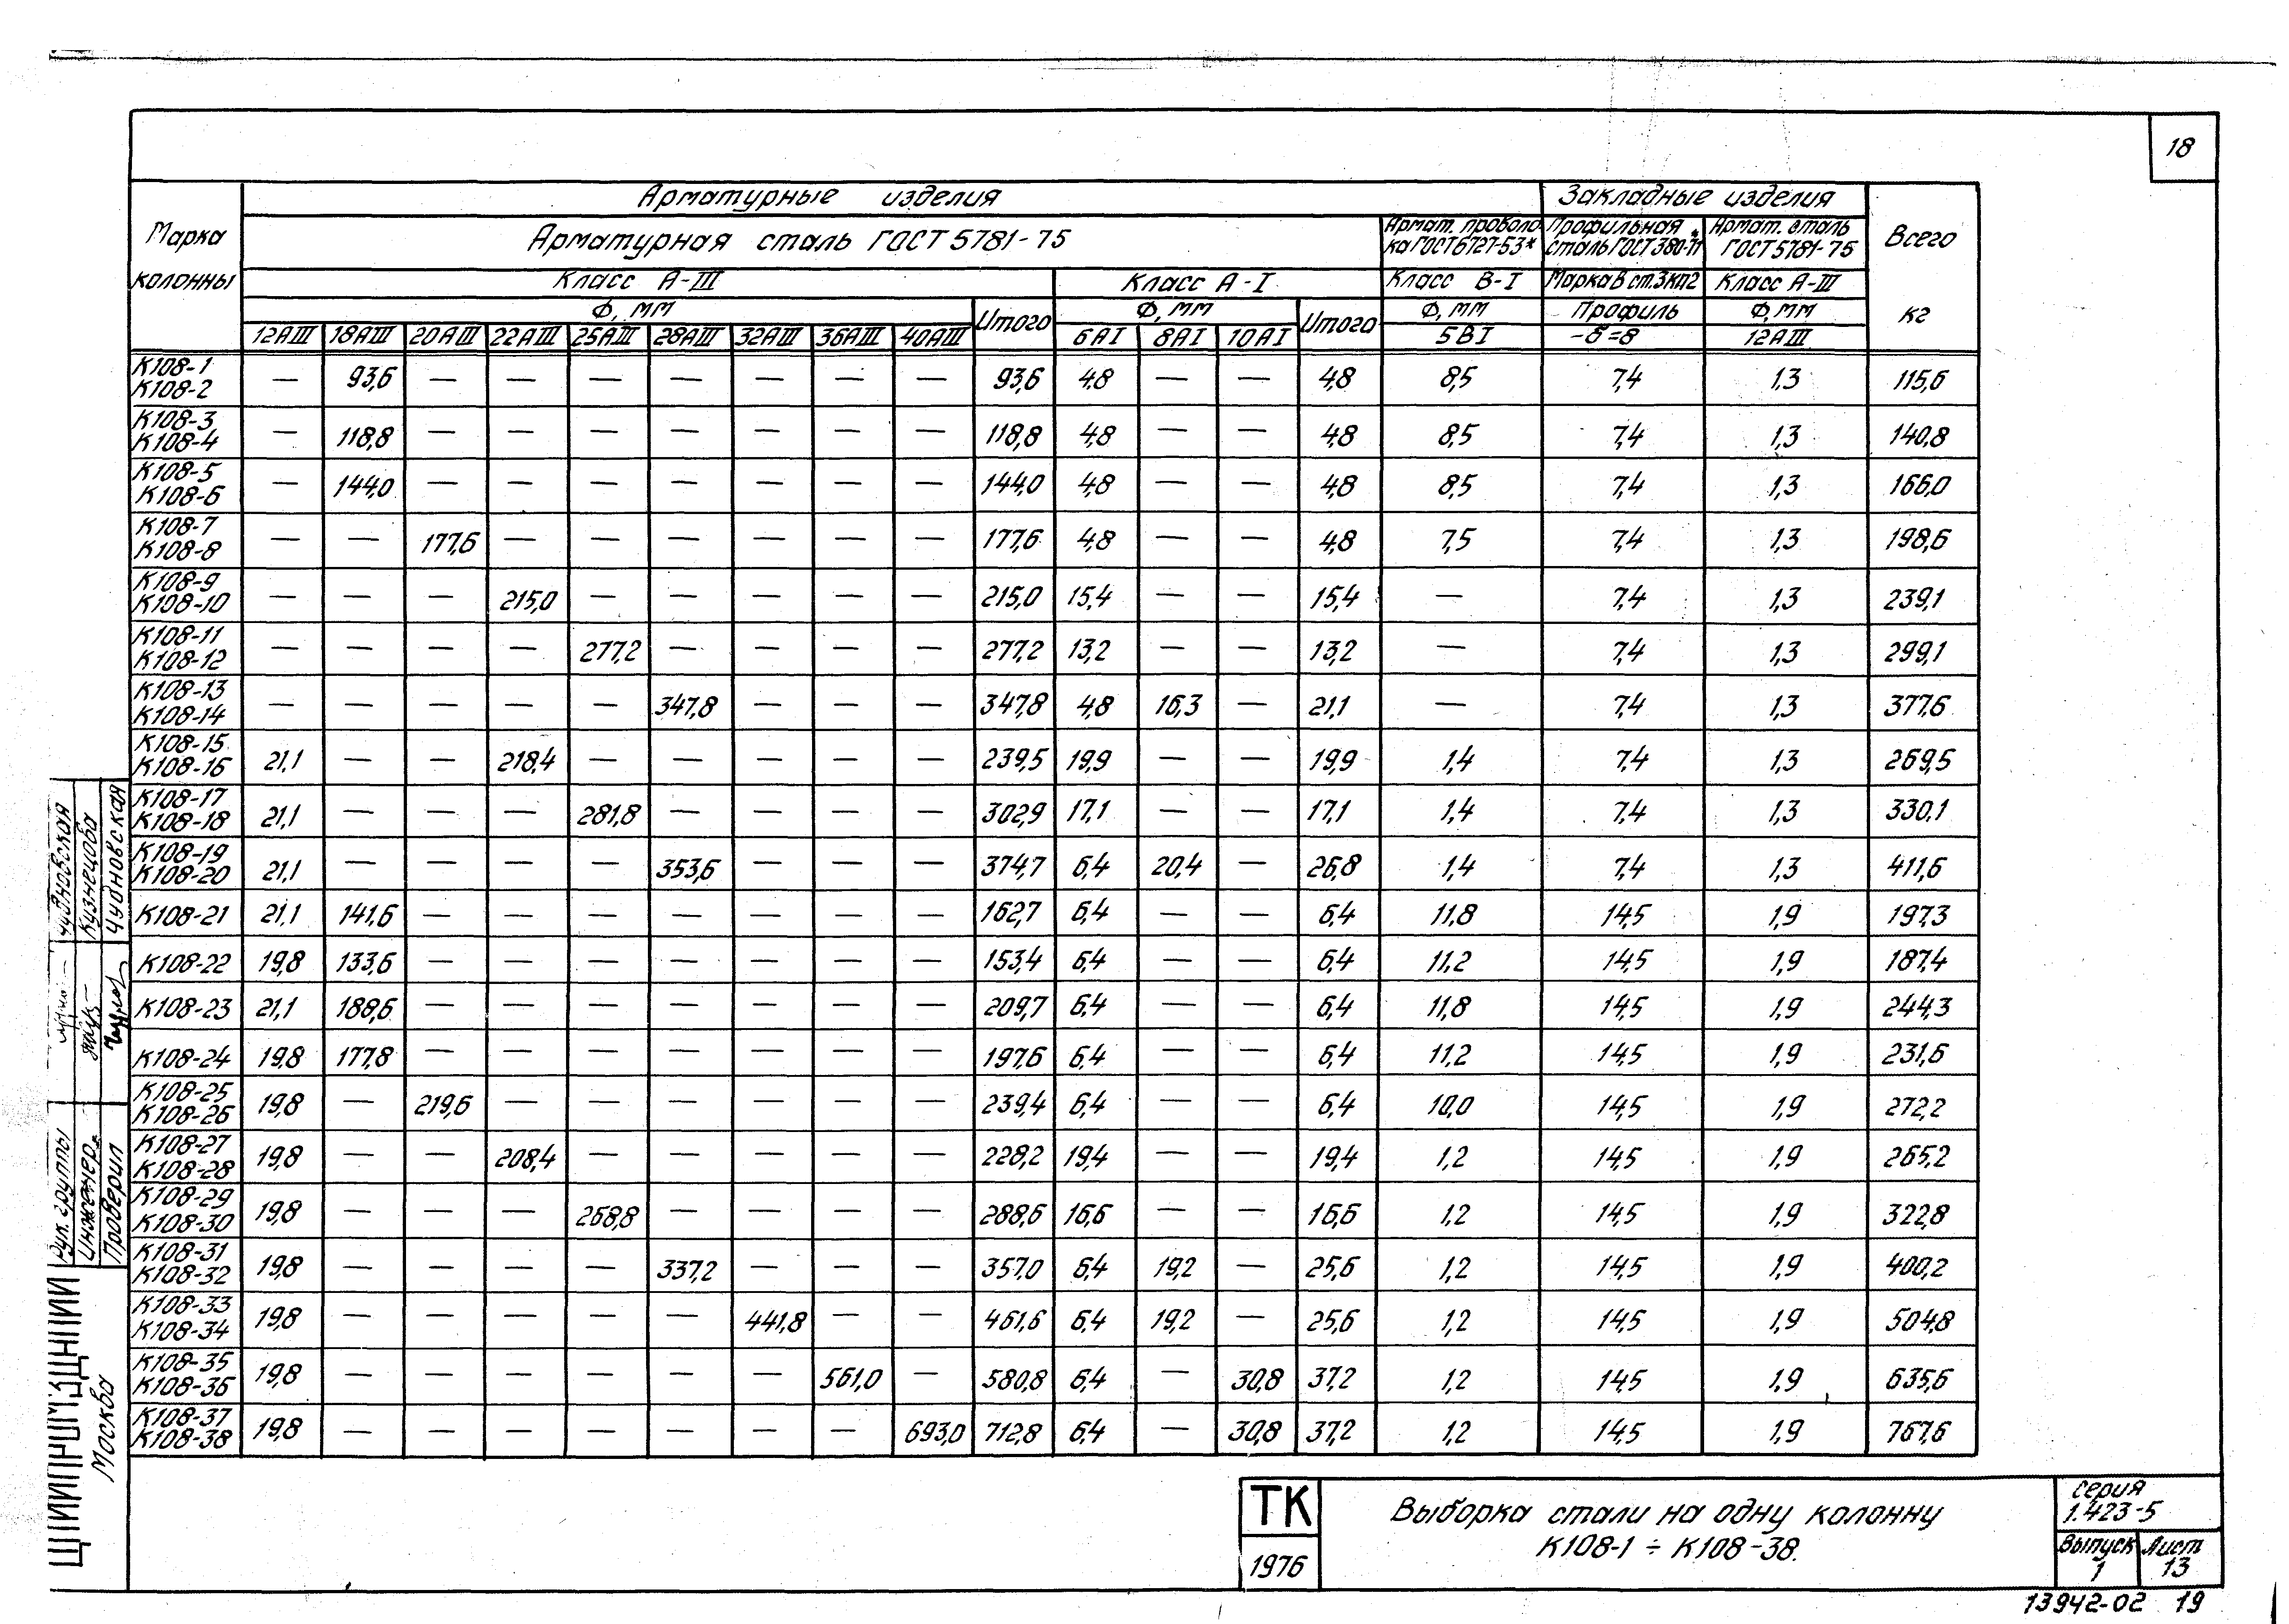 18
Марка колонны
Арматурные изделия
Закладные изделия
Всего кг
Арматурная сталь ГОСТ 5781-75
Армат. проволока ГОСТ 6727-53*
Профильная сталь ГОСТ 380-71*
Армат. сталь ГОСТ 5781-75
Класс А-III
Класс А-I
Класс В-I
Марка В ст.3кп2
Класс А-III
Ф, мм
Итого
Ф, мм
Итого
Ф, мм
Профиль
Ф, мм
12АIII 18АIII 20АIII 22АIII 25АIII 28АIII 32АIII 36АIII 40АIII 6АI 8АI 10АI 5ВI -δ=8 12АIII
К108-1 К108-2 — 93,6 — — — — — — — 93,6 4,8 — — 4,8 8,5 7,4 1,3 115,6
К108-3 К108-4 — 118,8 — — — — — — — 118,8 4,8 — — 4,8 8,5 7,4 1,3 140,8
К108-5 К108-6 — 144,0 — — — — — — — 144,0 4,8 — — 4,8 8,5 7,4 1,3 166,0
К108-7 К108-8 — — 177,6 — — — — — — 177,6 4,8 — — 4,8 7,5 7,4 1,3 198,6
К108-9 К108-10 — — — 215,0 — — — — — 215,0 15,4 — — 15,4 — 7,4 1,3 239,1
К108-11 К108-12 — — — — 277,2 — — — — 277,2 13,2 — — 13,2 — 7,4 1,3 299,1
К108-13 К108-14 — — — — — 347,8 — — — 347,8 4,8 16,3 — 21,1 — 7,4 1,3 377,6
К108-15 К108-16 21,1 — — 218,4 — — — — — 239,5 19,9 — — 19,9 1,4 7,4 1,3 269,5
К108-17 К108-18 21,1 — — — 281,8 — — — — 302,9 17,1 — — 17,1 1,4 7,4 1,3 330,1
К108-19 К108-20 21,1 — — — — 353,6 — — — 374,7 6,4 20,4 — 26,8 1,4 7,4 1,3 411,6
К108-21 21,1 141,6 — — — — — — — 162,7 6,4 — — 6,4 11,8 14,5 1,9 197,3
К108-22 19,8 133,6 — — — — — — — 153,4 6,4 — — 6,4 11,2 14,5 1,9 187,4
К108-23 21,1 188,6 — — — — — — — 209,7 6,4 — — 6,4 11,8 14,5 1,9 244,3
К108-24 19,8 177,8 — — — — — — — 197,6 6,4 — — 6,4 11,2 14,5 1,9 231,6
К108-25 К108-26 19,8 — 219,6 — — — — — — 239,4 6,4 — — 6,4 10,0 14,5 1,9 272,2
К108-27 К108-28 19,8 — — 208,4 — — — — — 228,2 19,4 — — 19,4 1,2 14,5 1,9 265,2
К108-29 К108-30 19,8 — — — 268,8 — — — — 288,6 16,6 — — 16,6 1,2 14,5 1,9 322,8
К108-31 К108-32 19,8 — — — — 337,2 — — — 357,0 6,4 19,2 — 25,6 1,2 14,5 1,9 400,2
К108-33 К108-34 19,8 — — — — — 441,8 — — 461,6 6,4 19,2 — 25,6 1,2 14,5 1,9 504,8
К108-35 К108-36 19,8 — — — — — — 561,0 — 580,8 6,4 — 30,8 37,2 1,2 14,5 1,9 635,6
К108-37 К108-38 19,8 — — — — — — — 693,0 712,8 6,4 — 30,8 37,2 1,2 14,5 1,9 767,6
Рук. группы Чудновская
Инженер Кузнецова
Проверил Чудновская
ЦНИИПРОМЗДАНИЙ
Москва
ТК
1976
Выборка стали на одну колонну
К108-1 ÷ К108-38.
серия
1.423-5
Выпуск 1
Лист 13
13942-02 19